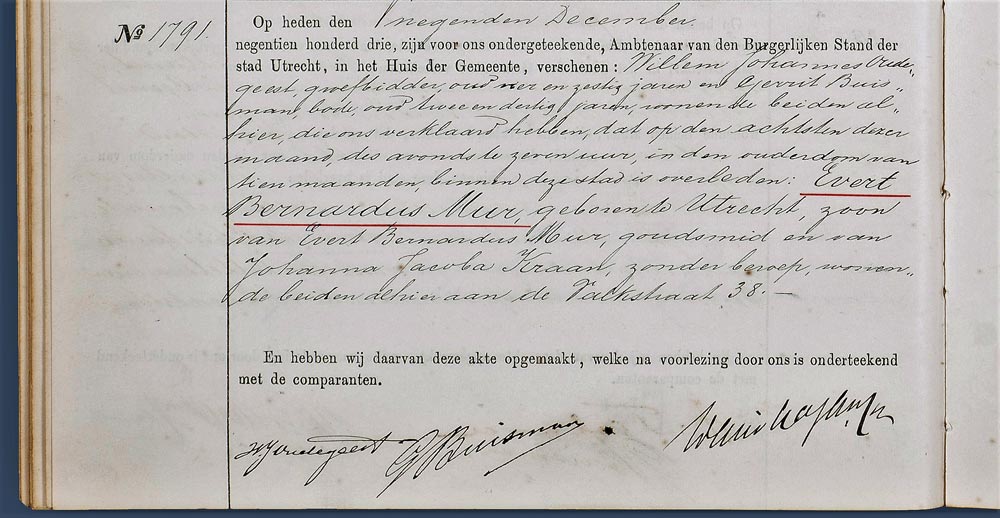 Nº 1791.
Op heden den negenden December
negentien honderd drie, zijn voor ons ondergeteekende, Ambtenaar van den Burgerlijken Stand der
stad Utrecht, in het Huis der Gemeente, verschenen: Willem Johannes Oude„
geest, groefbidder, oud vier en zestig jaren en Gerrit Buis„
man, bode, oud twee en dertig jaren, wonende beiden al„
hier, die ons verklaard hebben, dat op den achtsten dezer
maand, des avonds te zeven uur, in den ouderdom van
tien maanden, binnen deze stad is overleden: Evert
Bernardus Mur, geboren te Utrecht, zoon
van Evert Bernardus Mur, goudsmid en van
Johanna Jacoba Kraan, zonder beroep, wonen„
de beiden alhier aan de Valkstraat 38.—
En hebben wij daarvan deze akte opgemaakt, welke na voorlezing door ons is onderteekend
met de comparanten.
WJoudegeest GBuisman